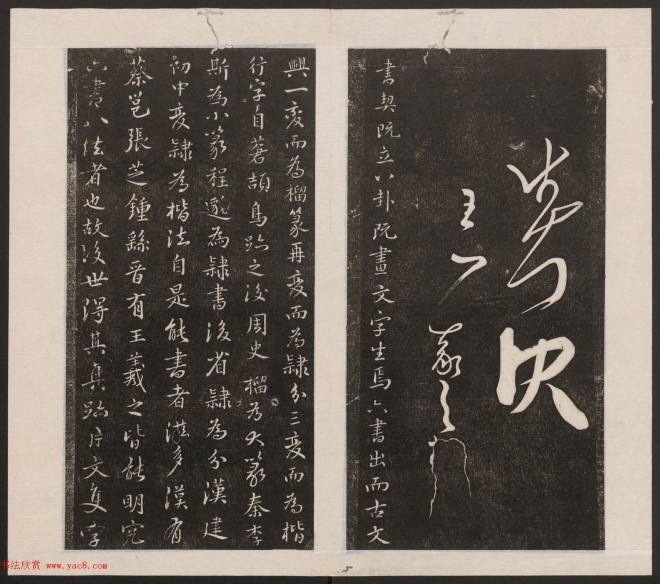 羲之
書契既立八卦既畫文字生焉六書出而古文
興一変而為榴篆再変而為隸分三変而為楷
行字自蒼頡鳥跡之後周史榴為大篆秦李
斯為小篆程邈為隸書後省隸為分漢建
初中変隸為楷法自是能書者滋多漢有
蔡邕張芝鍾繇晉有王羲之皆能明究
六書八法者也故後世得其真跡片文隻字
书法欣赏 www.yac8.com